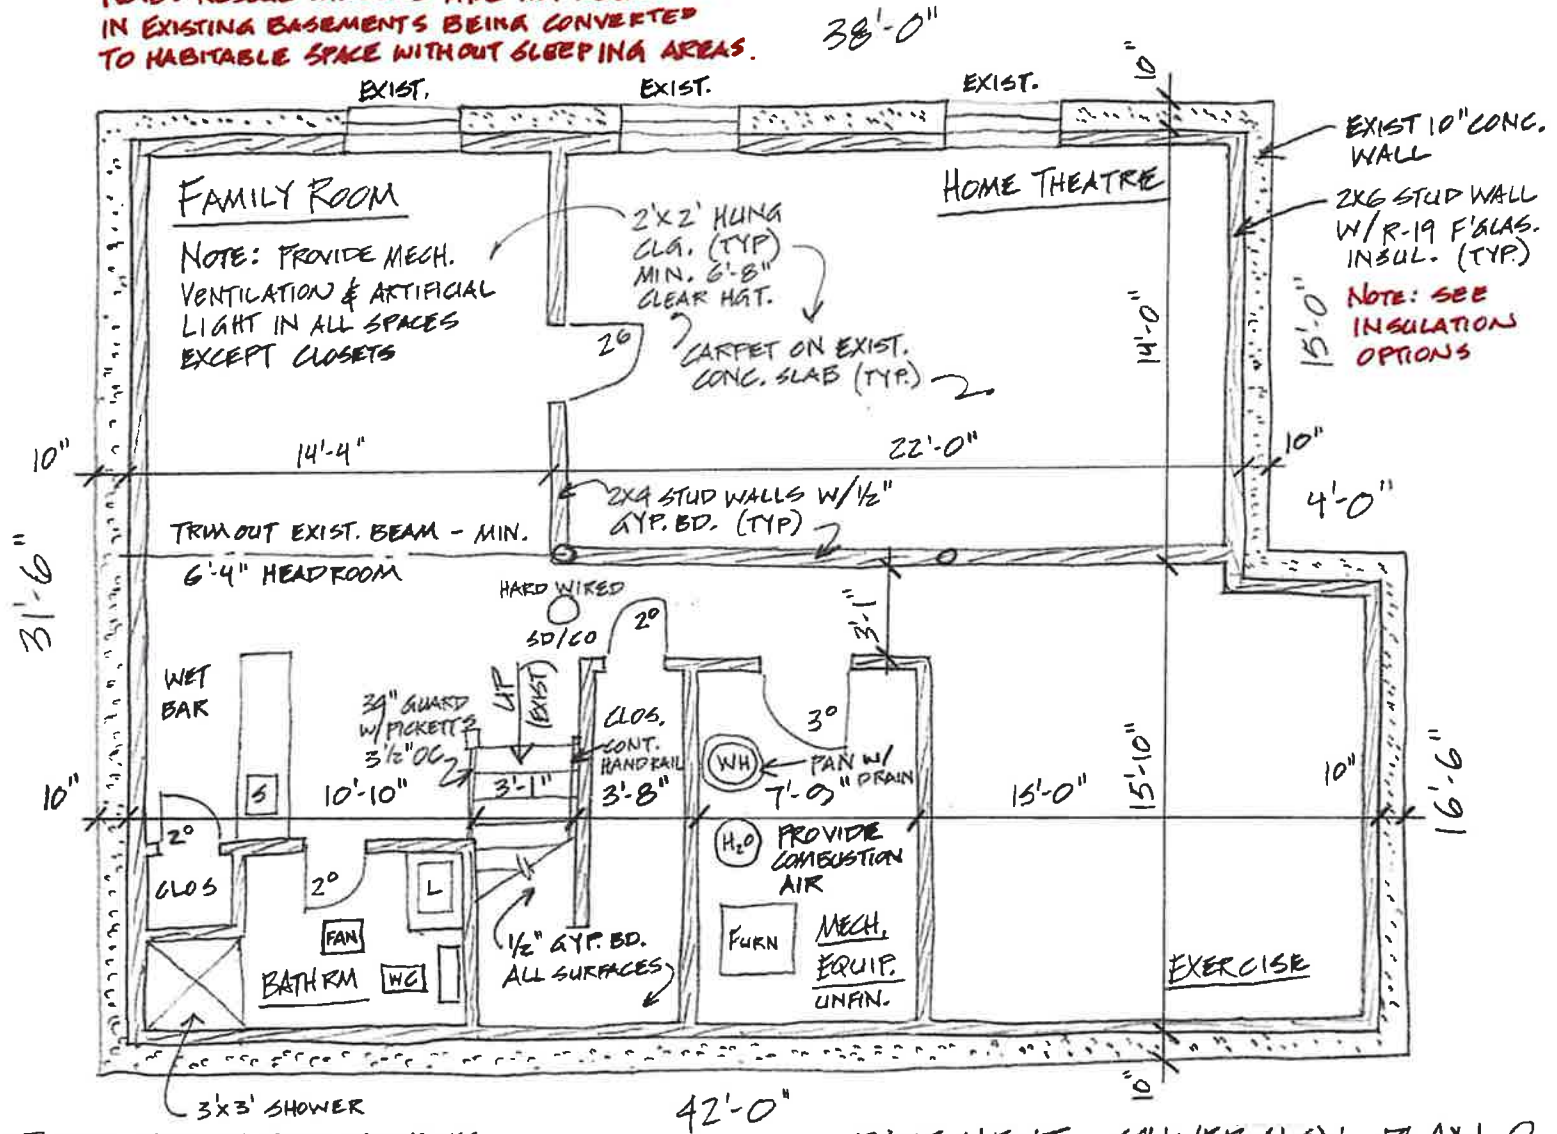 IN EXISTING BASEMENTS BEING CONVERTED
TO HABITABLE SPACE WITHOUT SLEEPING AREAS.
38'-0"
10"
EXIST.
EXIST.
EXIST.
EXIST 10" CONC.
WALL
2X6 STUD WALL
W/R-19 F'GLAS.
INSUL. (TYP.)
NOTE: SEE
INSULATION
OPTIONS
FAMILY ROOM
NOTE: PROVIDE MECH.
VENTILATION & ARTIFICIAL
LIGHT IN ALL SPACES
EXCEPT CLOSETS
2'X2' HUNG
CLG. (TYP)
MIN. 6'-8"
CLEAR HGT.
HOME THEATRE
2⁶
CARPET ON EXIST.
CONC. SLAB (TYP.)
14'-0"
15'-0"
10"
14'-4"
22'-0"
10"
4'-0"
2X4 STUD WALLS W/1/2"
GYP. BD. (TYP)
TRIM OUT EXIST. BEAM - MIN.
6'-4" HEADROOM
31'-6"
HARD WIRED
SD/CO
2⁰
3'-1"
WET
BAR
34" GUARD
W/PICKETTS
3 1/2" OC
UP
(EXIST)
CLOS.
CONT.
HANDRAIL
3⁰
WH
PAN W/
DRAIN
10"
S
10'-10"
3'-1"
3'-8"
7'-9"
15'-0"
15'-10"
10"
16'-6"
2⁰
CLOS
2⁰
L
H₂O
PROVIDE
COMBUSTION
AIR
FAN
BATHRM
WC
1/2" GYP. BD.
ALL SURFACES
FURN
MECH.
EQUIP.
UNFIN.
EXERCISE
3'X3' SHOWER
42'-0"
10"